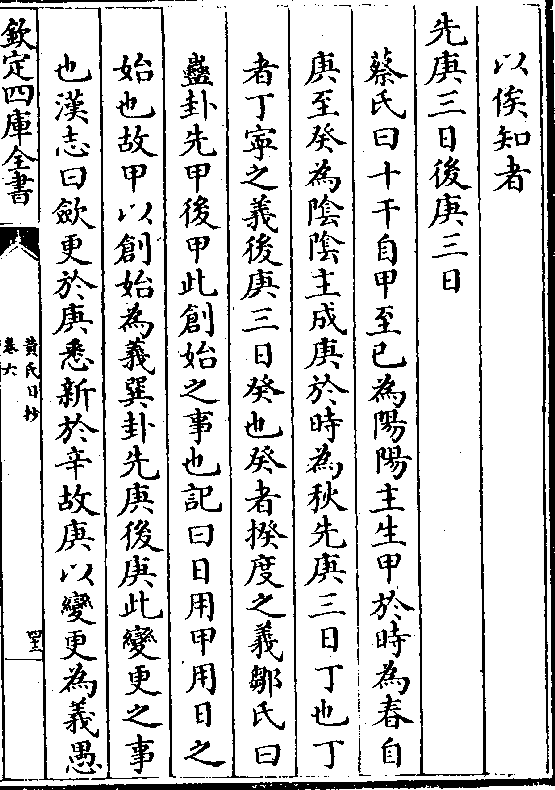 以俟知者
先庚三日後庚三日
蔡氏曰十干自甲至巳為陽陽主生甲於時為春自
庚至癸為陰陰主成庚於時為秋先庚三日丁也丁
者丁寧之義後庚三日癸也癸者揆度之義鄒氏曰
蠱卦先甲後甲此創始之事也記曰日用甲用日之
始也故甲以創始為義巽卦先庚後庚此變更之事
也漢志曰歛更於庚悉新於辛故庚以變更為義愚
欽定四庫全書
黄氏日抄
卷六